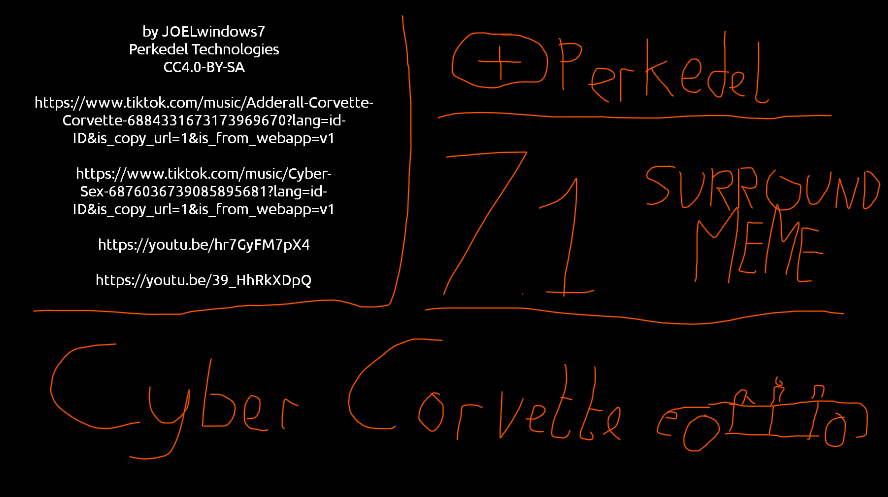 by JOELwindows7
Perkedel Technologies
CC4.0-BY-SA
https://www.tiktok.com/music/Adderall-Corvette-
Corvette-6884331673173969670?lang=id-
ID&is_copy_url=1&is_from_webapp=v1
https://www.tiktok.com/music/Cyber-
Sex-6876036739085895681?lang=id-
ID&is_copy_url=1&is_from_webapp=v1
https://youtu.be/hr7GyFM7pX4
https://youtu.be/39_HhRkXDpQ
+ Perkedel
7.1
SURROUND
MEME
Cyber Corvette